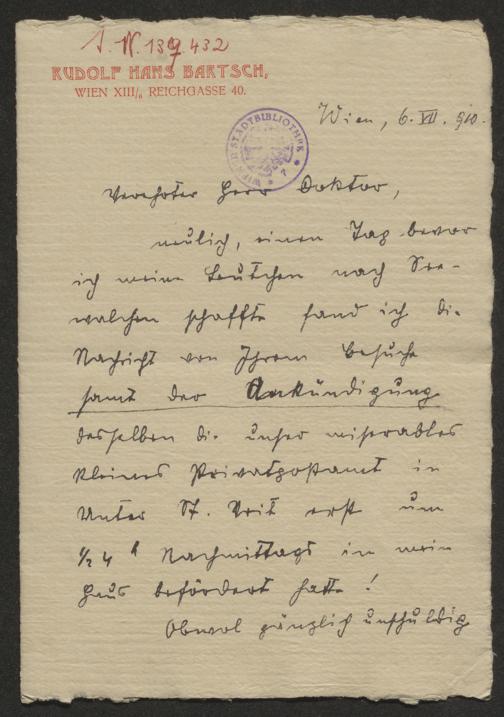 I. N. 139.432
RUDOLF HANS BARTSCH,
WIEN XIII/6 REICHGASSE 40.
WIENER STADTBIBLIOTHEK
Wien, 6. VII. 910.
Verehrter Herr Doktor,
neulich, einen Tag bevor
ich meine Leutchen nach See-
walchen schaffte fand ich die
Nachricht von Ihrem Besuche
samt der Ankündigung
desselben die unser miserables
kleines Privatpostamt in
Unter St. Veit erst um
½ 4 h Nachmittags in mein
Haus befördert hatte!
Obwol gänzlich unschuldig